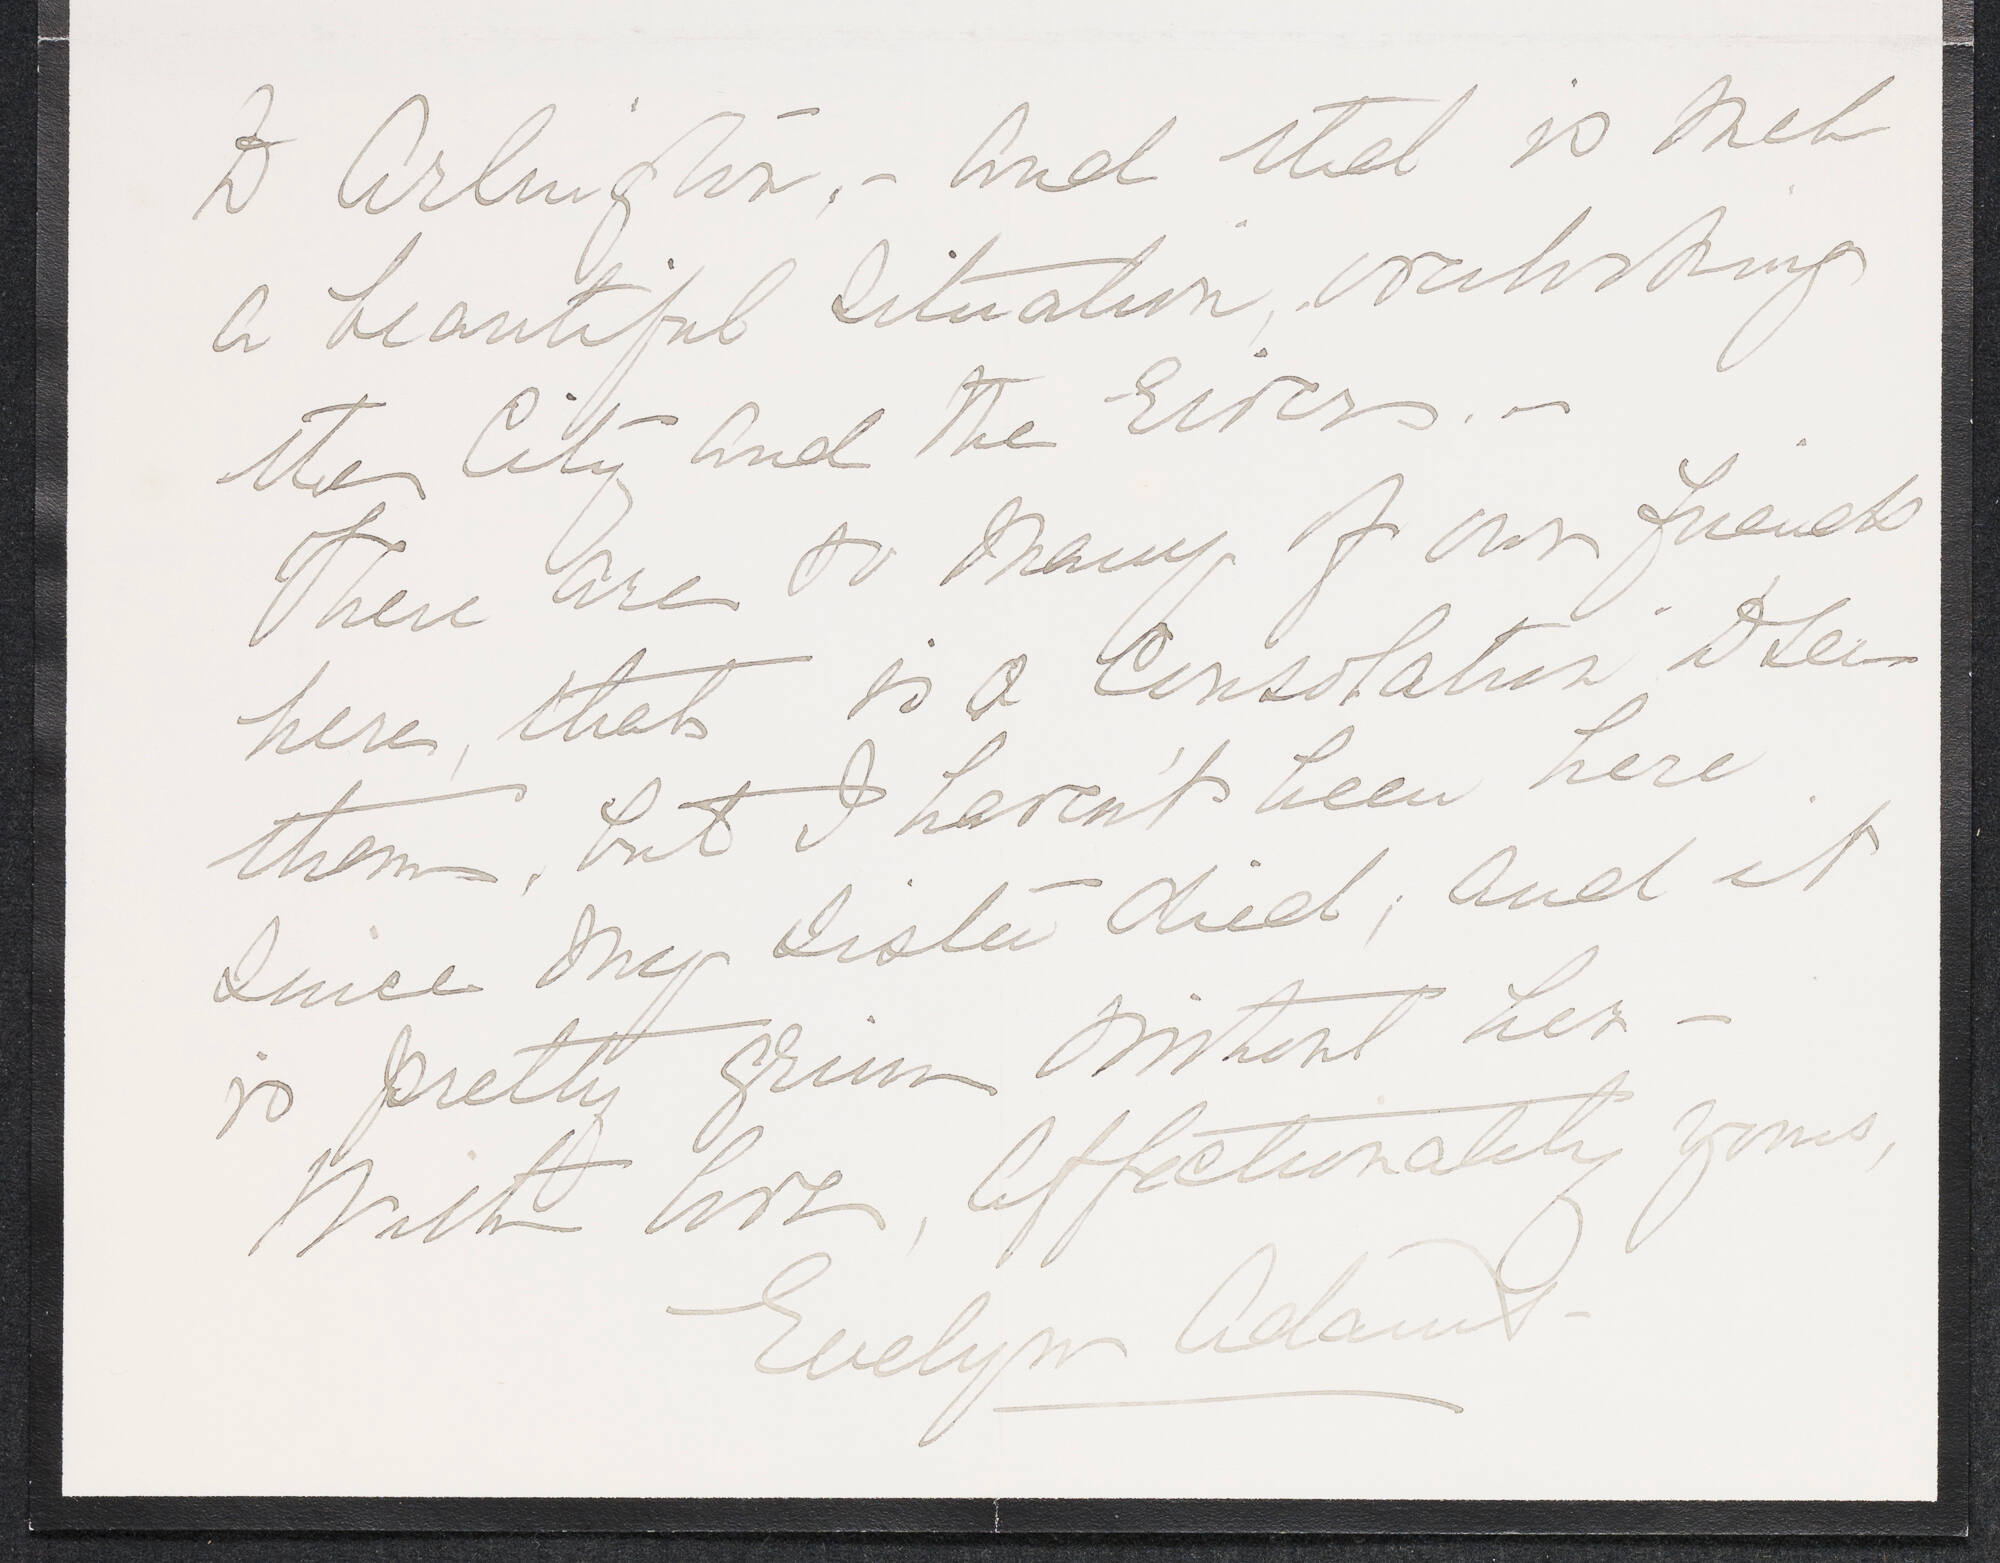 to Arlington, - and that is such
a beautiful situation, overlooking
the City and the River. -
There are so many of our friends
here, that is a Consolation to see
them, but I haven't been here
since my sister died, and it
is pretty grim without her -
With love, Affectionately yours,
Evelyn Adams -